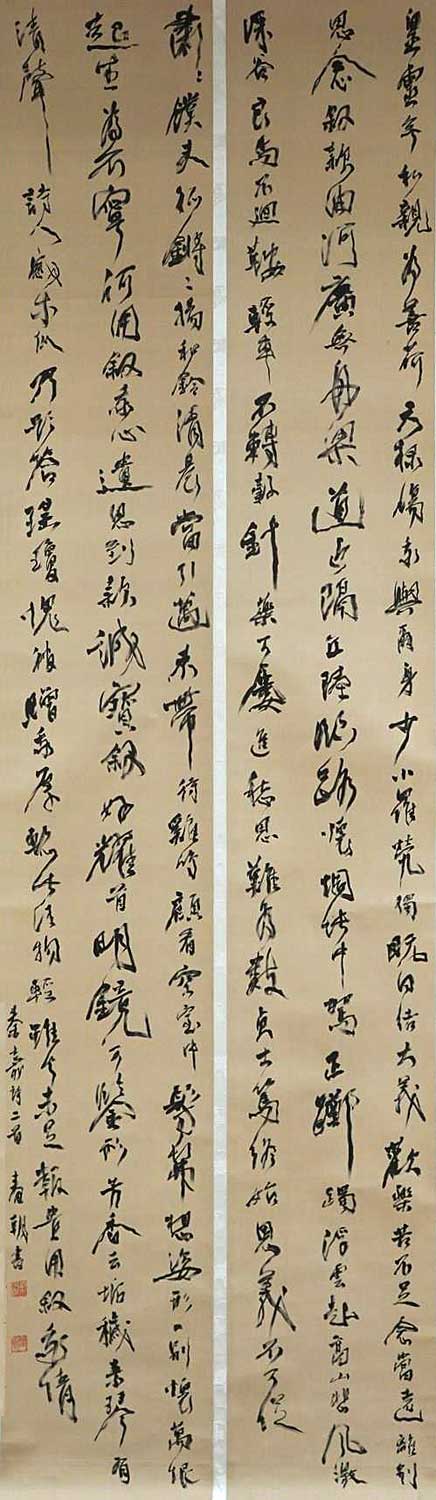 皇靈無私親為善荷天祿傷我與爾身少小罹煢獨既得結大義歡樂苦不足念當遠離別
思念敘款曲河廣無舟梁道近隔丘陸臨路懷惆悵中駕正躑躅浮雲起高山悲風激
深谷良馬不迴鞍輕車不轉轂針藥可屢進愁思難為數貞士篤終始恩義不可
肅々僕夫征鏘々揚和鈴清晨當引邁束帶待雞鳴顧看空室中髣髴想姿形一別懷萬恨
起坐為不寧何用敘我心遺思致款誠寶釵好耀首明鏡可鑒形芳香去垢穢素琴有
清聲詩人感木瓜乃欲答瑤瓊愧彼贈我厚慙此往物輕雖知未足報貴用敘我情
秦嘉詩二首 春朝書